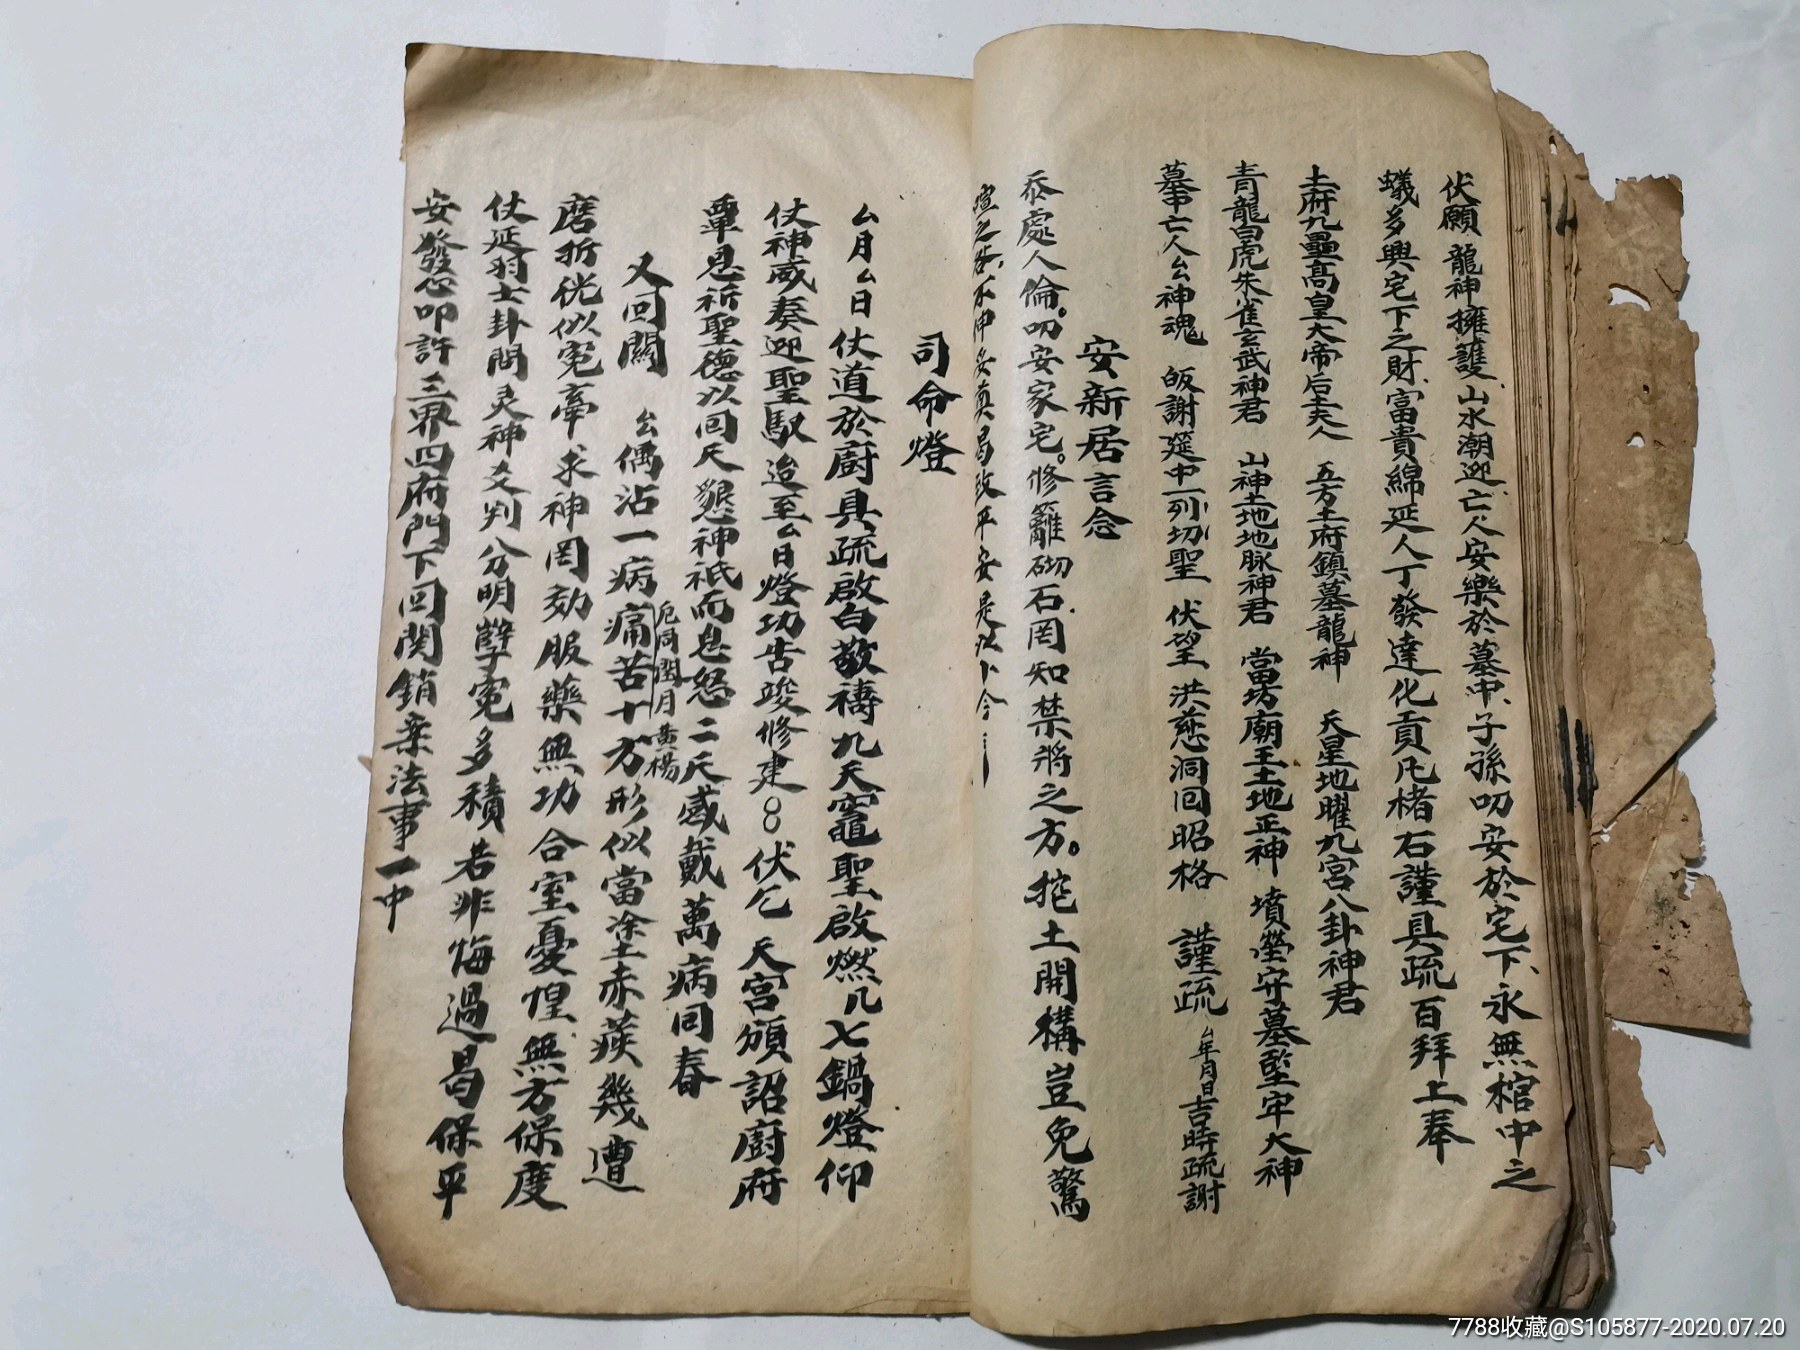 伏願 龍神擁護山水潮迎亡人安樂於墓中子孫叨安於宅下永無棺中之
蟻多興宅下之財富貴綿延人丁發達化貢凡楮右謹具疏百拜上奉
土府九壘高皇大帝后土夫人 五方土府鎮墓龍神 天星地曜九宮八卦神君
青龍白虎朱雀玄武神君 山神土地地脉神君 當坊廟王土地正神 墳塋守墓堅牢大神
墓中亡人厶神魂 皈謝筵中一列切聖 伏望 洪慈洞回昭格 謹疏 厶年月日吉時疏謝
安新居言念
忝處人倫。叨安家宅。修籬砌石.罔知禁將之方。挖土開構豈免驚
之 不伸安真曷致平安是以卜今
司命燈
厶月厶日仗道於廚具疏啟白敬禱九天竈聖啟燃几七鍋燈仰
仗神威奏迎聖馭迨至厶日燈功告竣修建 伏乞 天宮頒詔廚府
覃恩祈聖德以回天懇神祇而息怒二天感戴萬病同春
又回關 厶偶沾一病痛苦十方形似當塗土赤蒺幾遭
厄同閏月黃楊
磨折恍似冤牽求神罔効服藥無功合室憂惶無方保度
仗延羽士卦問灵神爻判分明孽冤多積若非悔過曷保平
安發心叩許三界四府門下回関銷案法事一中
7788收藏@S105877-2020.07.20